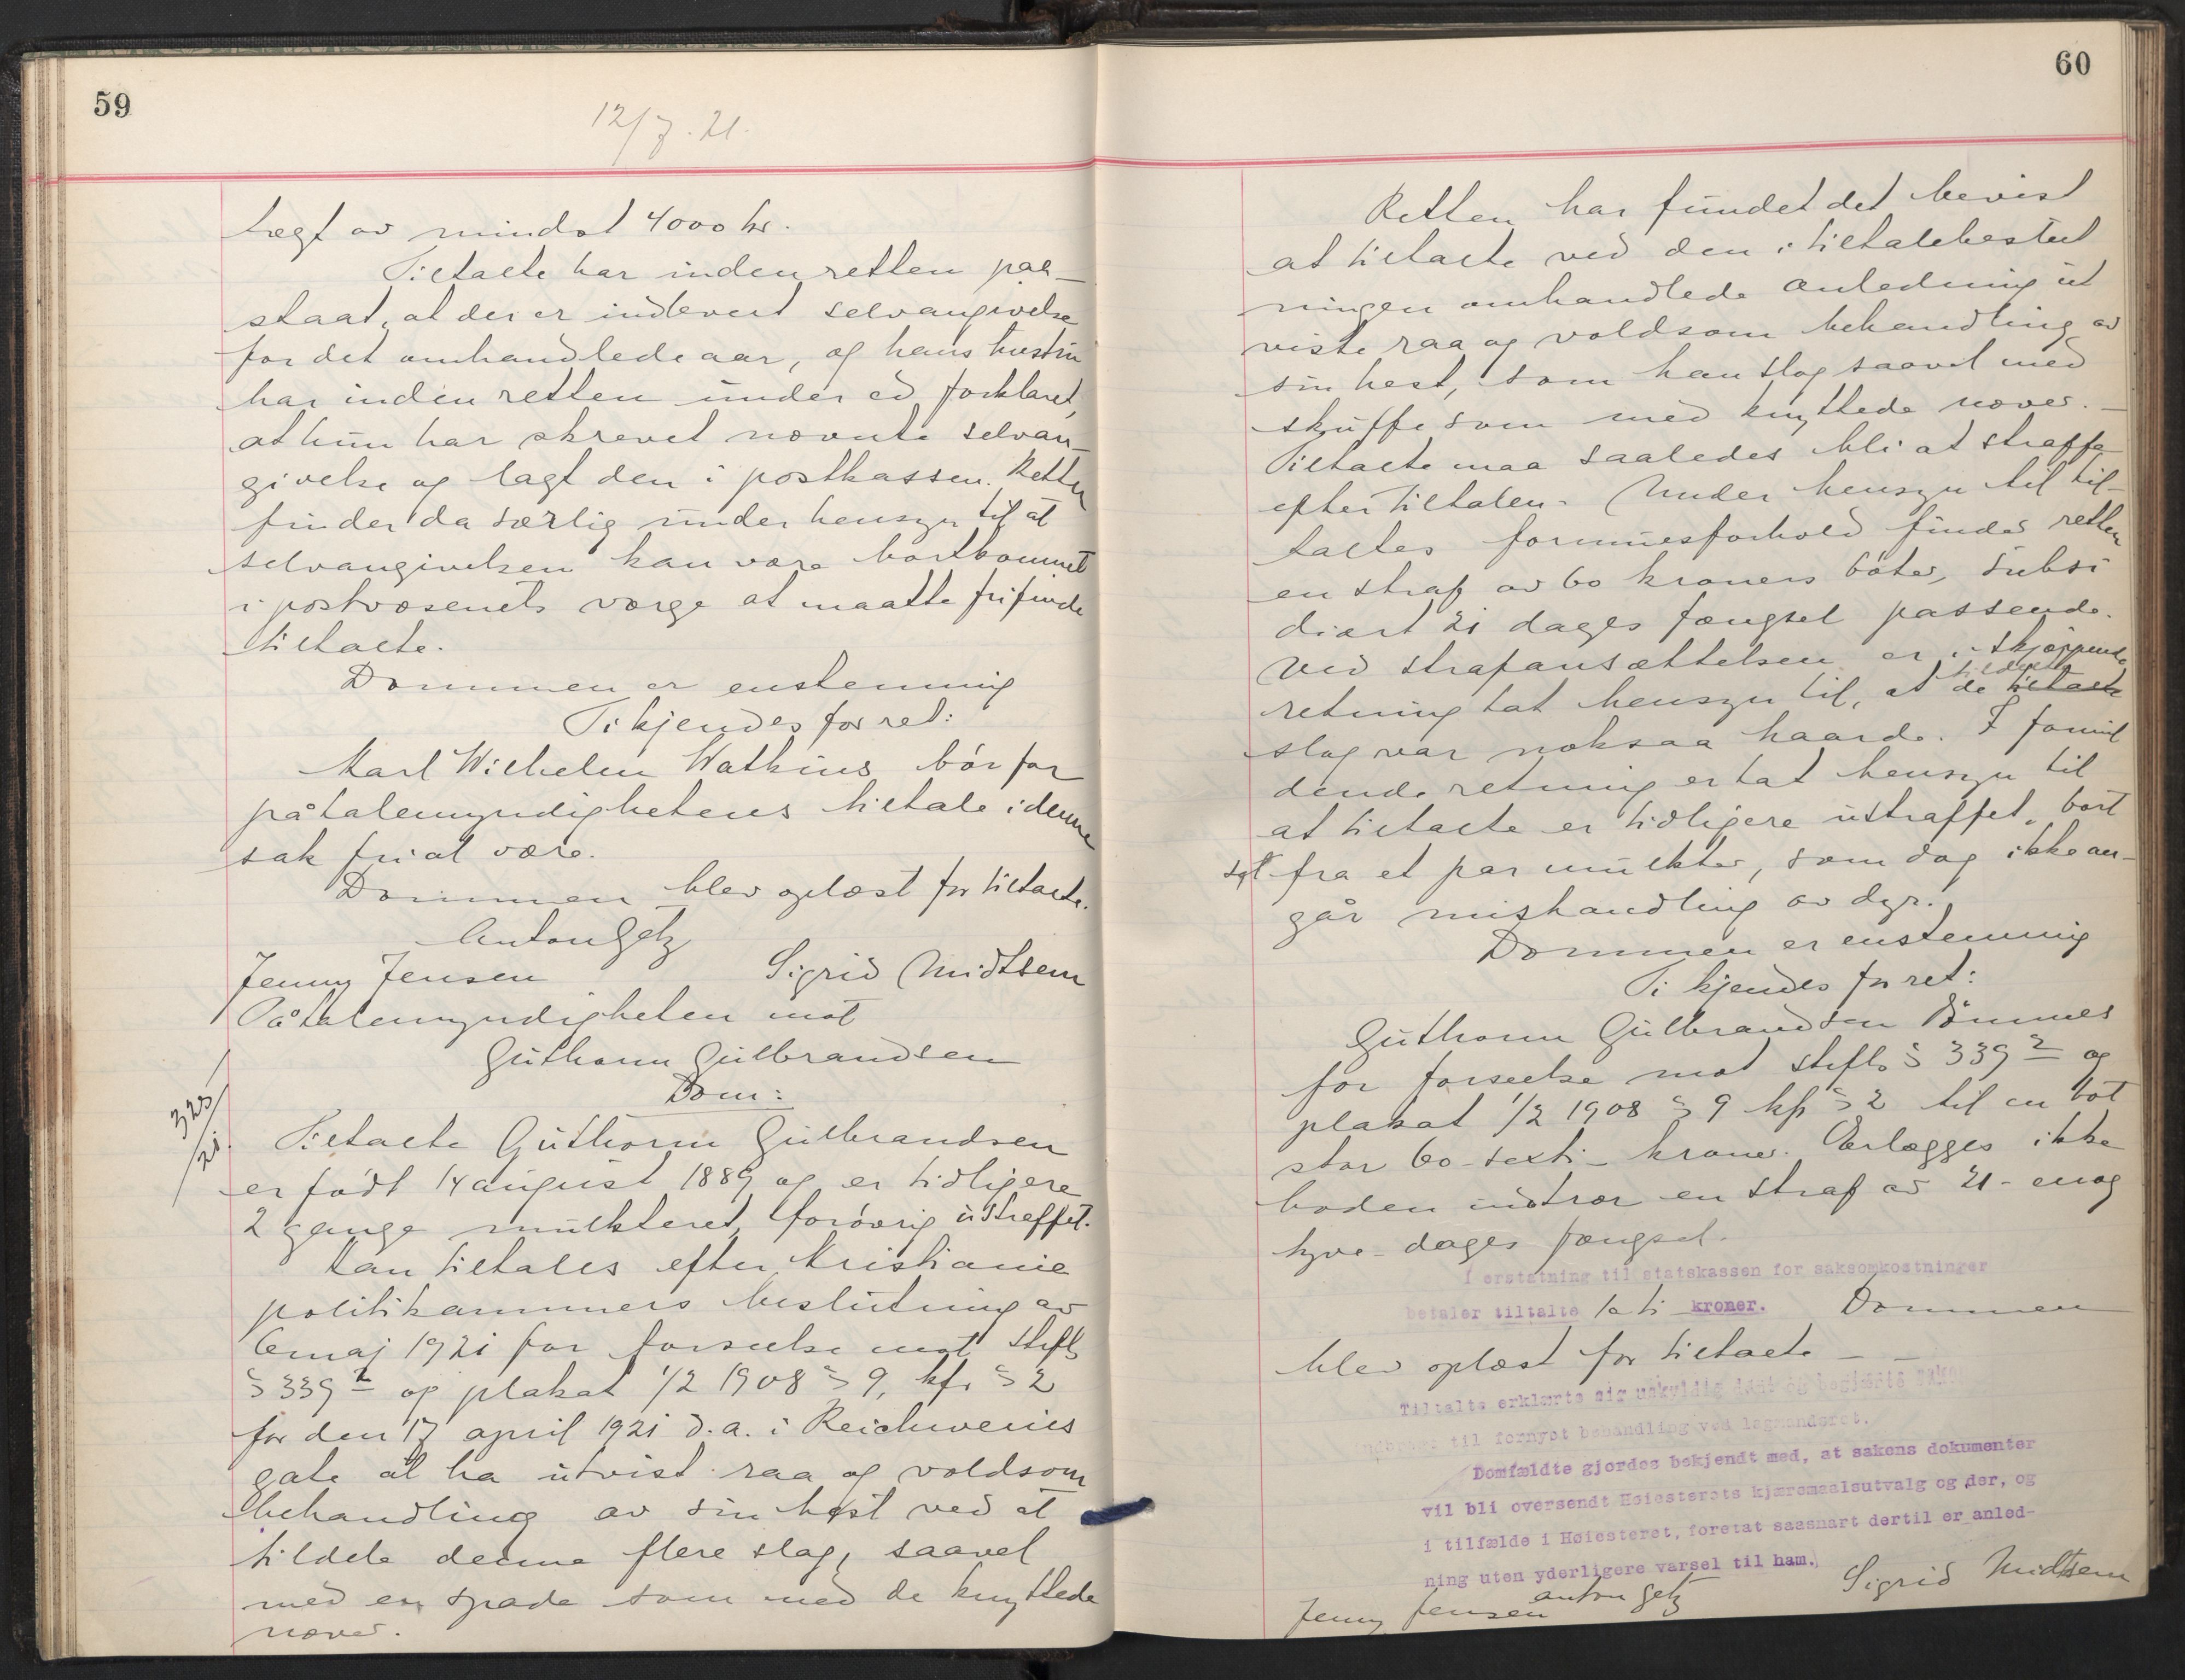 59
12/7.21.
tægt av mindst 4000 kr.
Tiltalte har inden retten paa-
staat, at der er indlevert selvangivelse
for det omhandlede aar, og hans hustru
har inden retten under ed forklaret,
at hun har skrevet nævnte selvan-
givelse og lagt den i postkassen. Retten
finder da særlig under hensyn til at
selvangivelsen kan være bortkommet
i postvæsenets værge at maatte frifinde
tiltalte.
Dommen er enstemmig
Ti kjendes for ret:
Karl Wilhelm Watkins bör for
påtalemyndighetens tiltale i denne
sak fri at være.
Dommen blev oplæst for tiltalte.
Anton Getz
Jenny Jensen Sigrid Midtsem
Påtalemyndigheten mot
Guthorm Gulbrandsen
Dom:
323/21.
Tiltalte Guthorm Gulbrandsen
er födt 14 august 1889 og er tidligere
2 gange mulkteret, forövrig ustraffet.
Han tiltales efter Kristiania
politikammers beslutning av
6 maj 1921 for forseelse mot Stfl
§ 339 2 og plakat 1/2 1908 § 9, kfr § 2
for den 17 april 1921 d.a. i Reichweins
gate at ha utvist raa og voldsom
behandling av sin hest ved at
tildele denne flere slag, saavel
med en spade som med de knyttede
næver.
60
Retten har fundet det bevist
at tiltalte ved den i tiltalebeslut
ningen omhandlede anledning ut
viste raa og voldsom behandling av
sin hest, som han slog saavel med
skuffe som med knyttede næver.-
Tiltalte maa saaledes bli at straffe
efter tiltalen. Under hensyn til til-
taltes formuesforhold finder retten
en straf av 60 kroners böter, subsi
diært 21 dages fængsel passende.
Ved strafansættelsen er i skjærpende
retning tat hensyn til, at de tildelte tiltalte
slag var noksaa haarde. I formil
dende retning er tat hensyn til
at tiltalte er tidligere ustraffet, bort
set fra et par mulkter, som dog ikke an-
går mishandling av dyr.
Dommen er enstemmig
Ti kjendes for ret:
Guthorm Gulbrandsen dömmes
for forseelse mot stfls § 339 2 og
plakat 1/2 1908 § 9 kfr § 2 til en bot
stor 60 - seksti - kroner. Erlægges ikke
boden indtrær en straf av 21 - enog
tyve - dages fængsel.
I erstatning til statskassen for saksomkostninger
betaler tiltalte 10 ti kroner. Dommen
blev oplæst for tiltalte - -
Tiltalte erklærte sig uskyldig dømt og begjærte saken
indbragt til fornyet behandling ved lagmandsret.
Domfældte gjordes bekjendt med, at sakens dokumenter
vil bli oversendt Høiesterets kjæremaalsutvalg og der, og
i tilfælde i Høiesteret, foretat saasnart dertil er anled-
ning uten yderligere varsel til ham.
Jenny Jensen Anton Getz Sigrid Midtsem